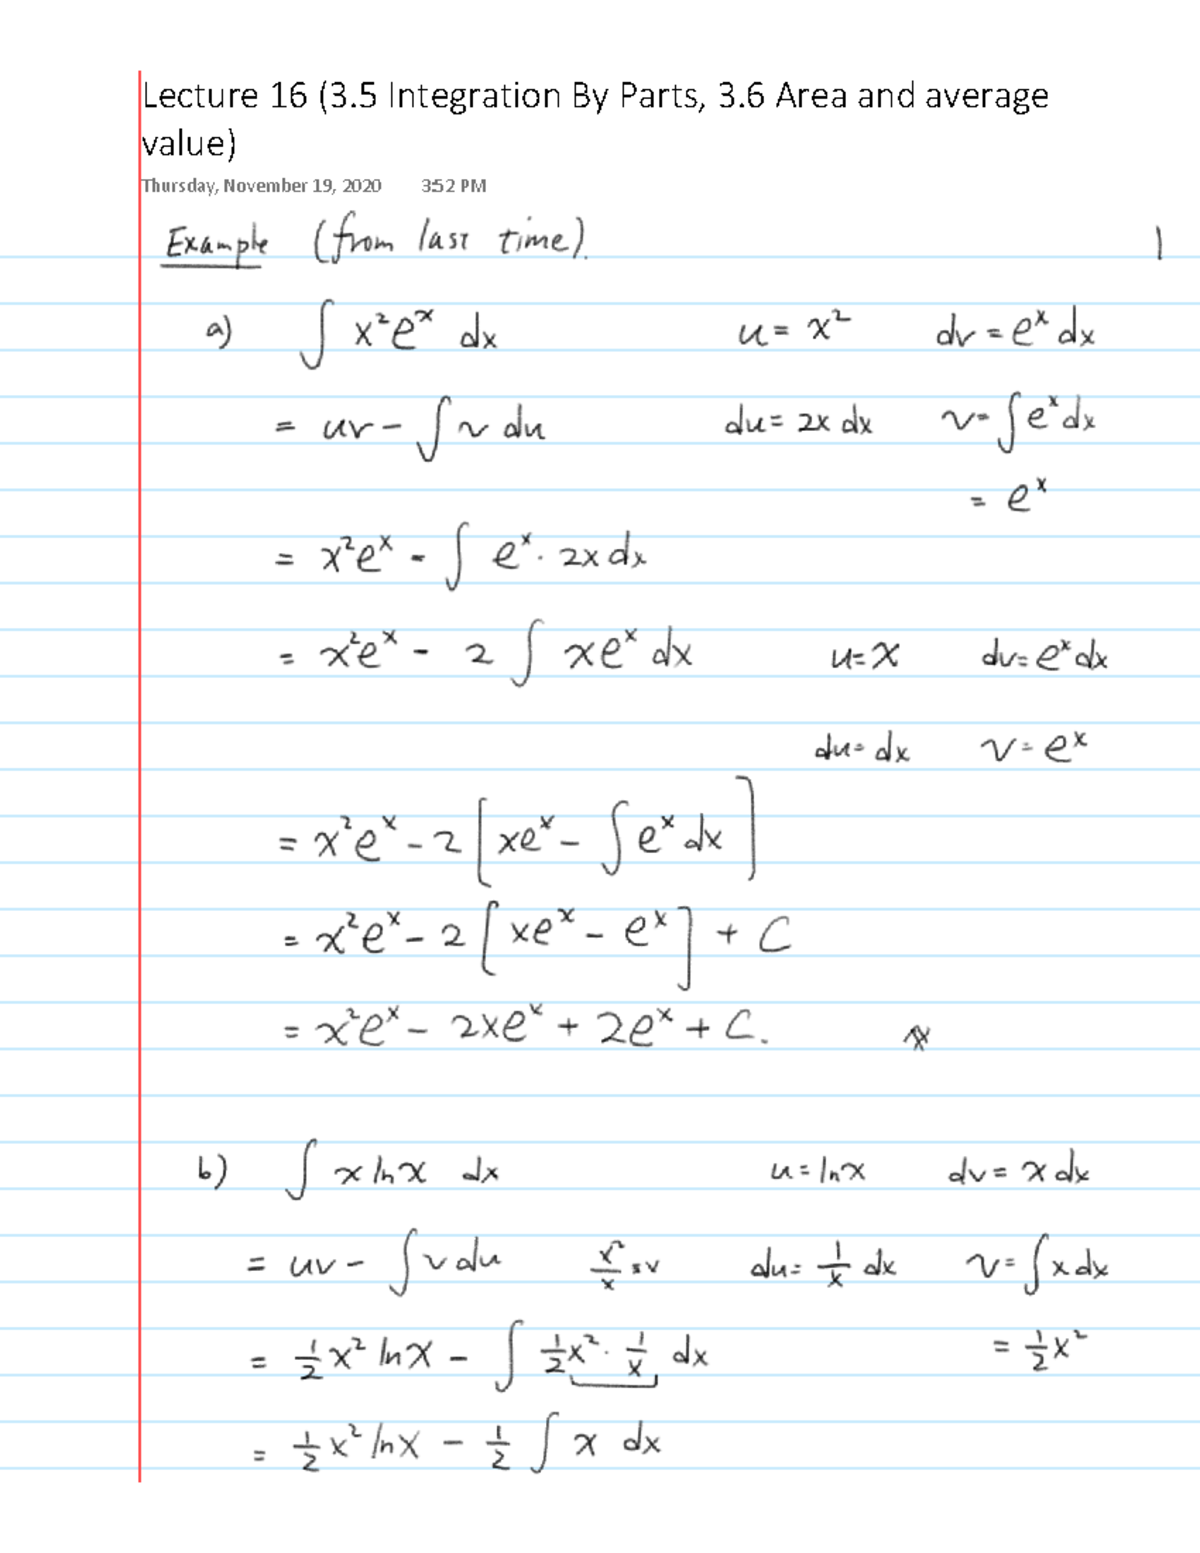 Lecture 16 (3.5 Integration By Parts, 3.6 Area and average
value)
Thursday, November 19, 2020 3:52 PM
Example (from last time). 1
a) ∫ x²eˣ dx u = x² dv = eˣ dx
= uv - ∫ v du du = 2x dx v = ∫ eˣ dx
= eˣ
= x²eˣ - ∫ eˣ · 2x dx
= x²eˣ - 2 ∫ xeˣ dx u = x dv = eˣ dx
du = dx v = eˣ
= x²eˣ - 2 [ xeˣ - ∫ eˣ dx ]
= x²eˣ - 2 [ xeˣ - eˣ ] + C
= x²eˣ - 2xeˣ + 2eˣ + C.
b) ∫ x ln x dx u = ln x dv = x dx
= uv - ∫ v du x²/x = v du = 1/x dx v = ∫ x dx
= ½x² ln x - ∫ ½x² · 1/x dx = ½x²
= ½x² ln x - ½ ∫ x dx